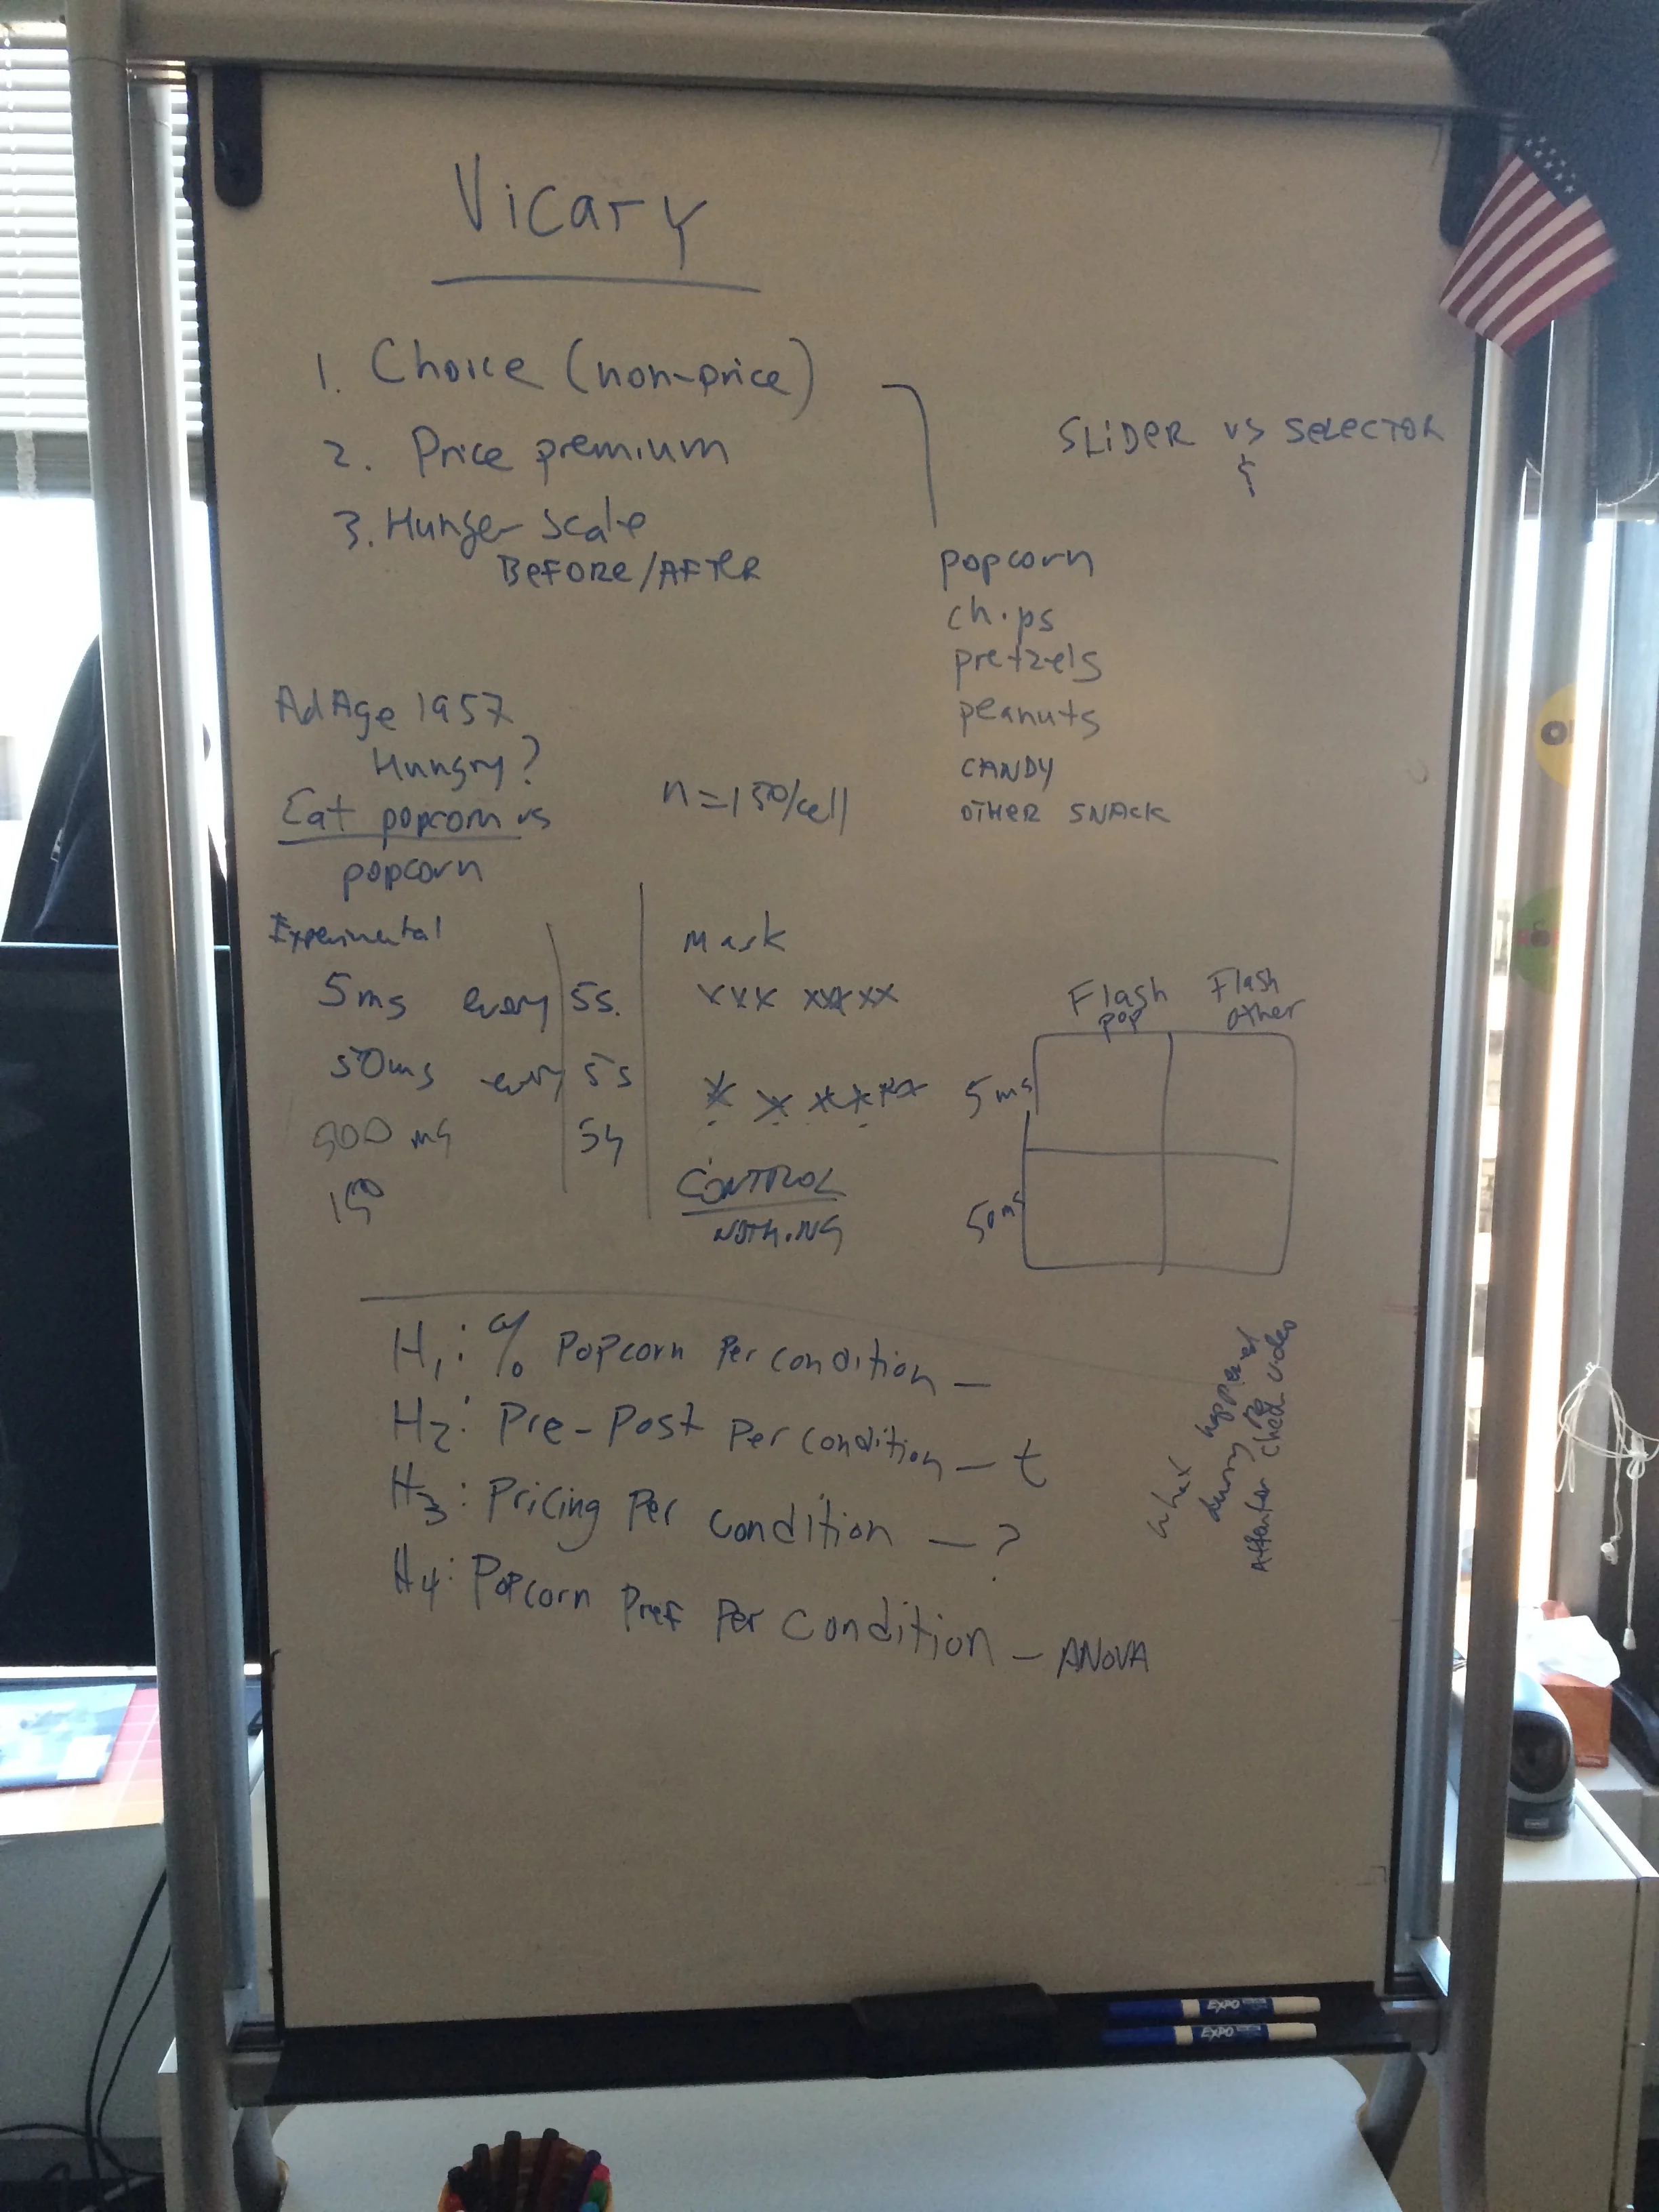 Vicary
1. Choice (non-price)
2. Price premium
3. Hunger scale
BEFORE/AFTER
SLIDER vs SELECTOR
popcorn
chips
pretzels
peanuts
CANDY
OTHER SNACK
AdAge 1957
Hungry?
Eat popcorn vs
popcorn
n=150/cell
Experimental
5ms every 5s.
50ms every 5s
500 ms 5s
Mask
xxx xxxxx
CONTROL
NOTHING
Flash pop
Flash other
5ms
50ms
H1: % Popcorn Per condition –
H2: Pre-Post Per condition – t
H3: Pricing Per condition – ?
H4: Popcorn Pref Per Condition – ANOVA
what happened
during the
video
EXPO
EXPO